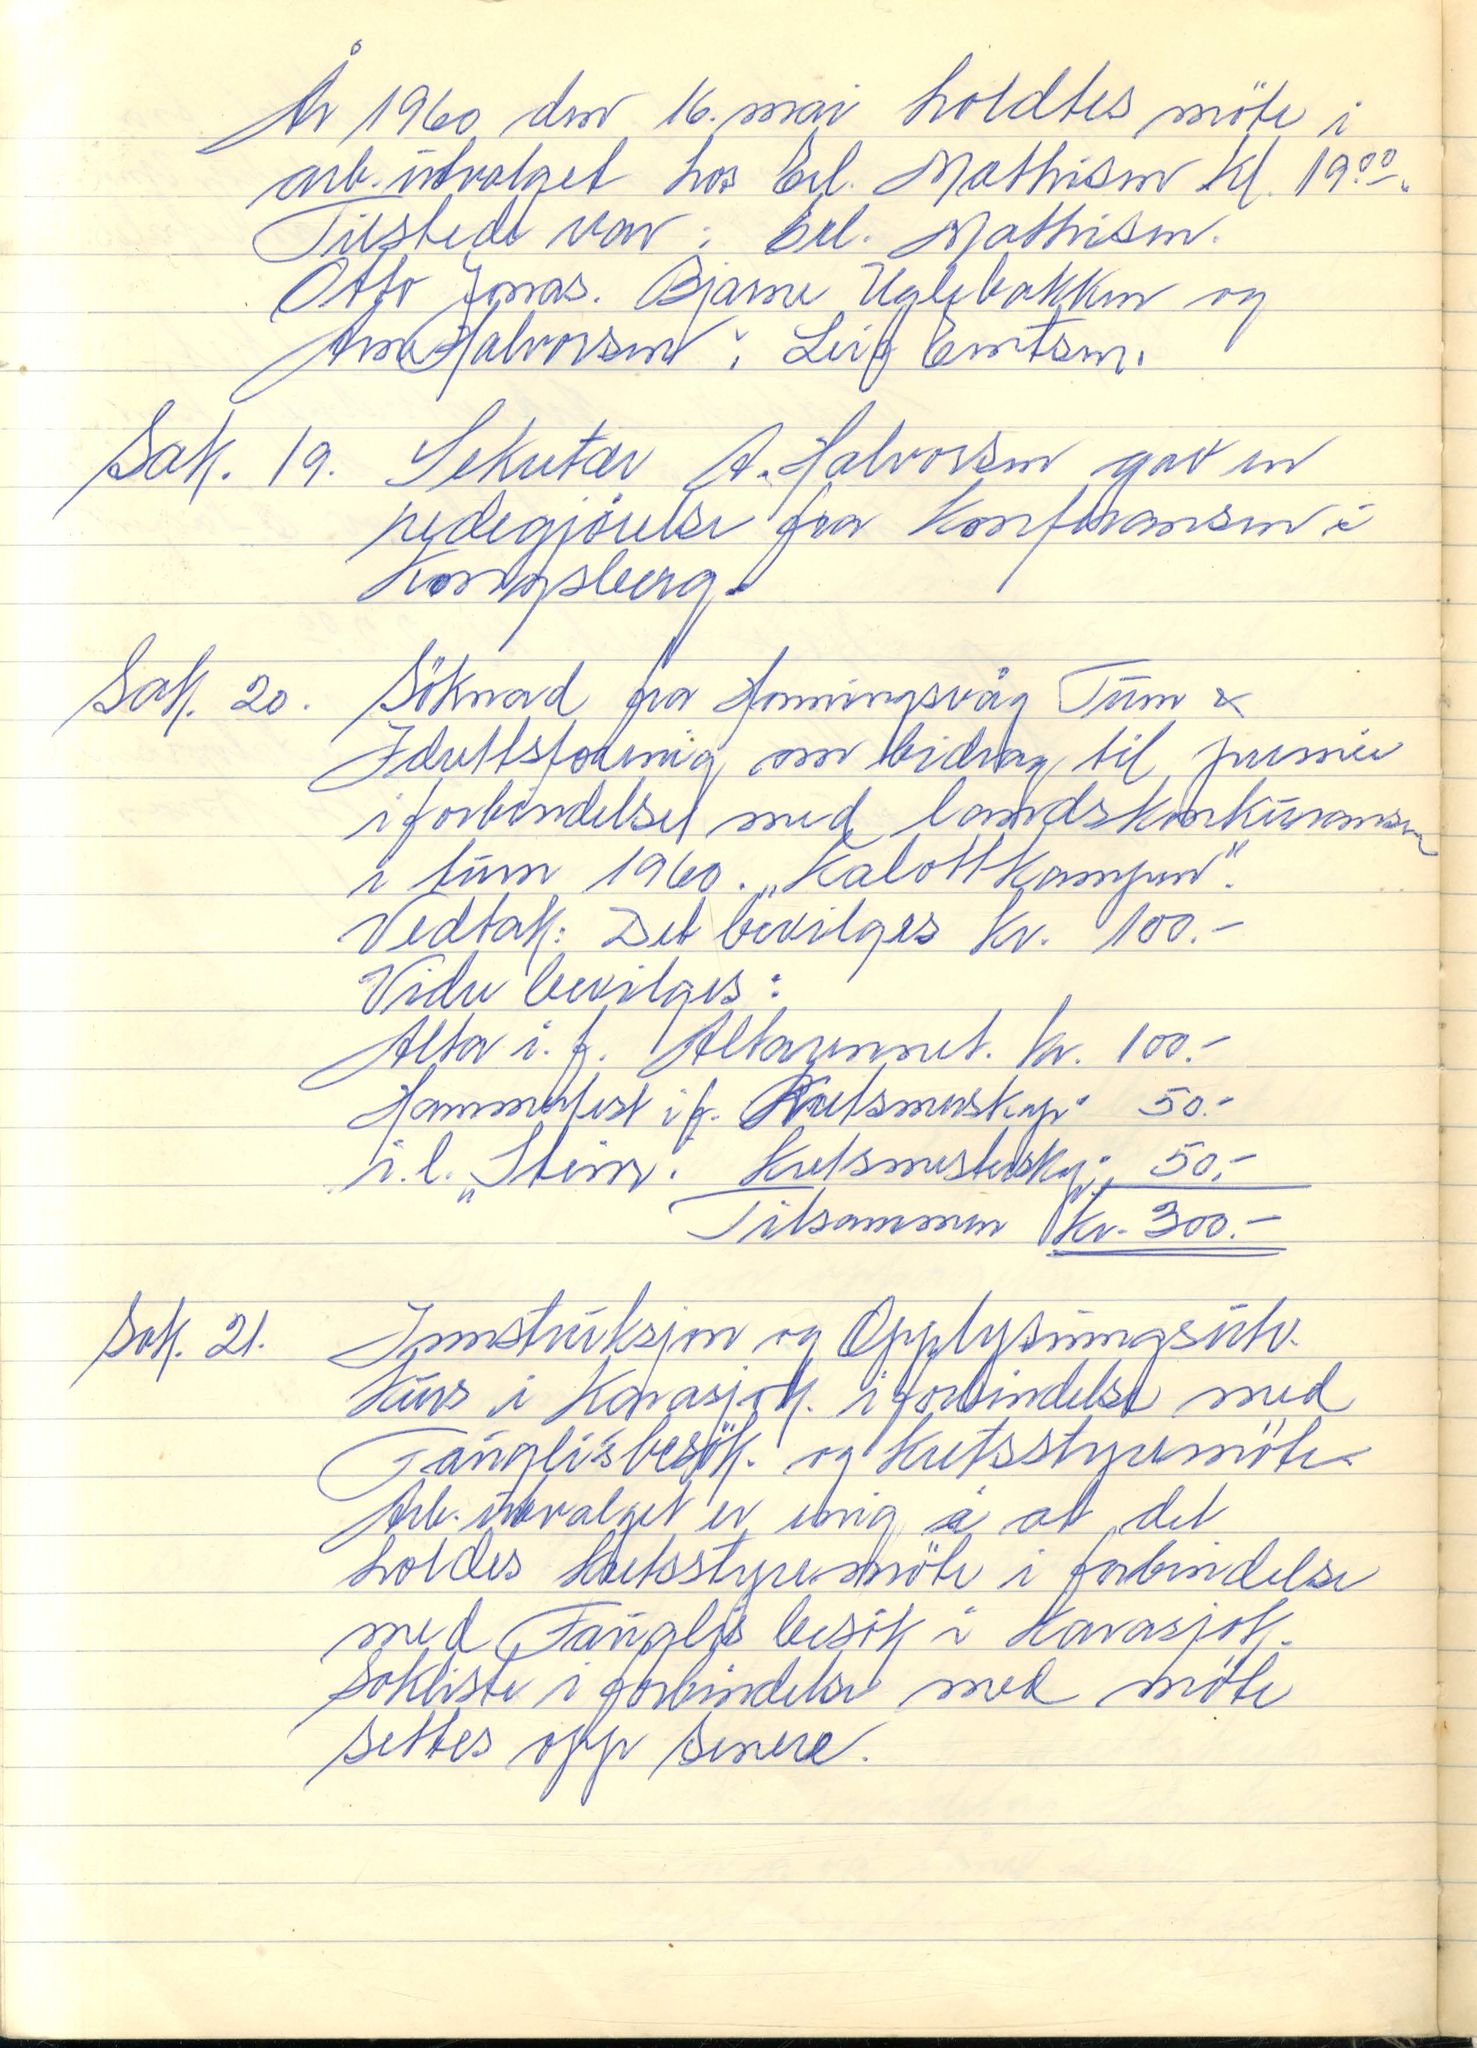 År 1960 den 16. mai holdtes möte i
arb. utvalget hos Erl. Mathisen kl. 19.00.
Tilstede var: Erl. Mathisen.
Otto Jonas. Bjarne Uglebakken og
Arne Halvorsen, Leif Emtsen.
Sak. 19. Sekretær A. Halvorsen gav en
redegjörelse fra Konferansen i
Kongsberg.
Sak. 20. Söknad fra Honningsvåg Turn &
Idrettsforenig om bidrag til premie
i forbindelse med landskonkuransen
i turn 1960. „Kalottkampen".
Vedtak: Det bevilges kr. 100.-
Videre bevilges:
Alta i. f. Altarennet. kr. 100.-
Hammerfest i f. Kretsmersksp. 50.-
i. l. „Stein. Kretsmestersk. 50.-
Tilsammen kr. 300.-
Sak. 21. Innstruksjon og Opplysningsutv.
kurs i Karasjok. i forbindelse med
Fanglis besök. og kretsstyremöte
Arb. utvalget er enig i at det
holdes kretsstyremöte i forbindelse
med Fanglis besök i Karasjok.
Sakliste i forbindelse med möte
settes opp senere.